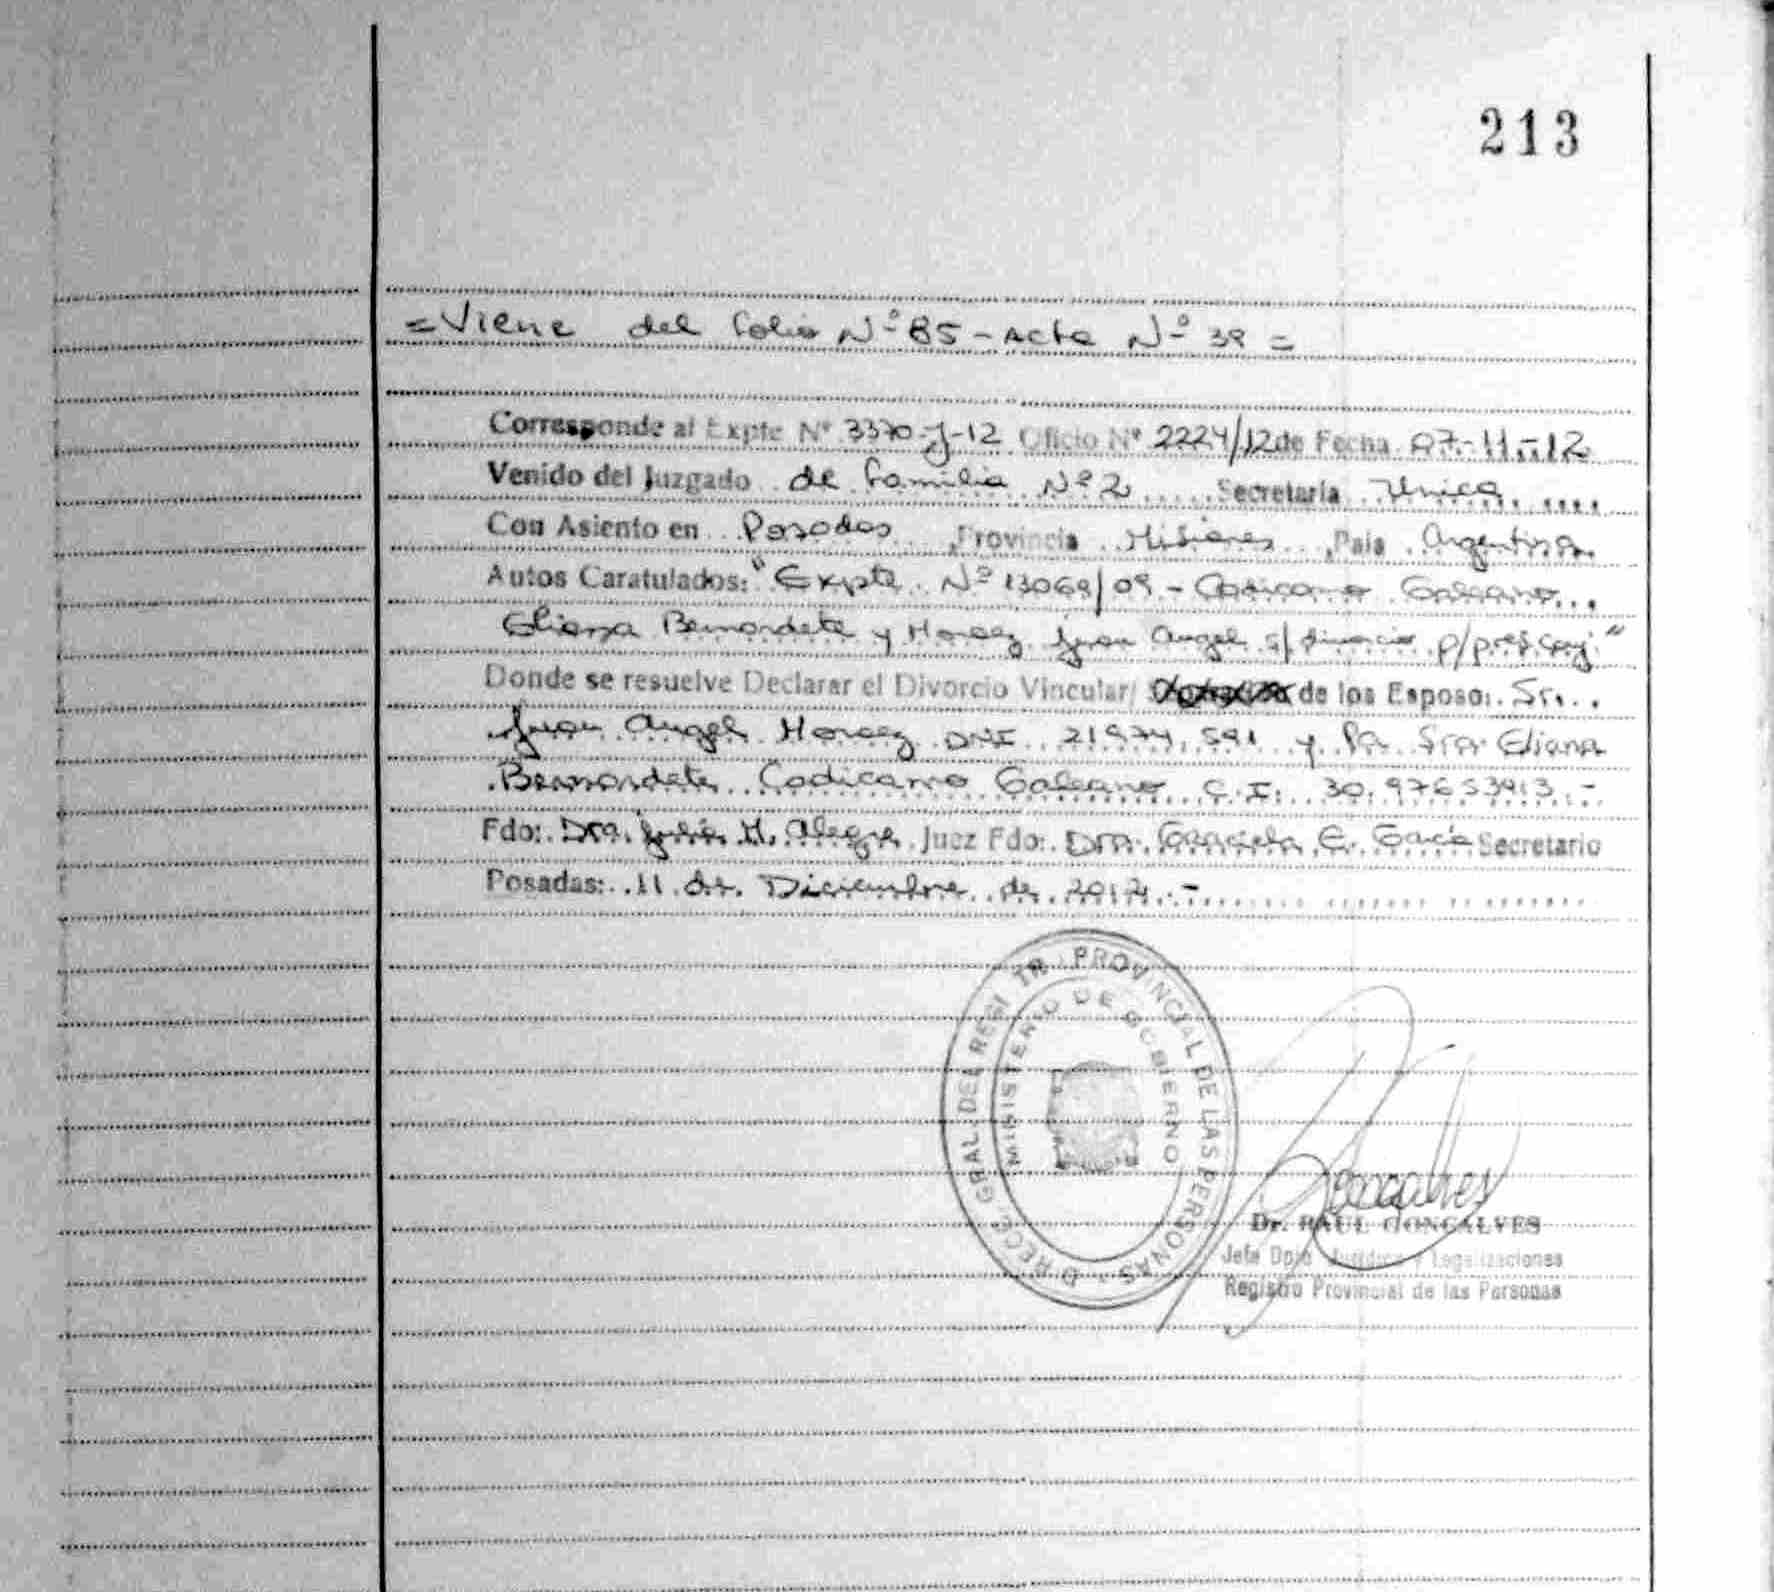 213
= Viene del Folio Nº 85 - Acta Nº 39 =
Corresponde al Expte Nº 3370-J-12 Oficio Nº 2224/12 de Fecha 07-11-12
Venido del Juzgado de Familia Nº 2 Secretaría Unica
Con Asiento en Posadas, Provincia Misiones, País Argentina
Autos Caratulados: "Expte. Nº 13069/09 - Codicamo Galeano
Eliana Bernardete y Juan Angel s/ divorcio p/pres. conj."
Donde se resuelve Declarar el Divorcio Vincular/ de los Esposo: Sr.
Juan Angel DNI 21.974.591 y la Sra Eliana
Bernardete Codicamo Galeano C.I. 30.97653913.-
Fdo: Dra. Julia H. Alegre Juez Fdo: Dra. Graciela E. Secretario
Posadas: 11 de Diciembre de 2012.-
DIRECC. GRAL. DEL REGISTR. PROVINCIAL DE LAS PERSONAS
MINISTERIO DE GOBIERNO
Dr. RAUL GONCALVES
Jefe Dpto Jurídico y Legalizaciones
Registro Provincial de las Personas